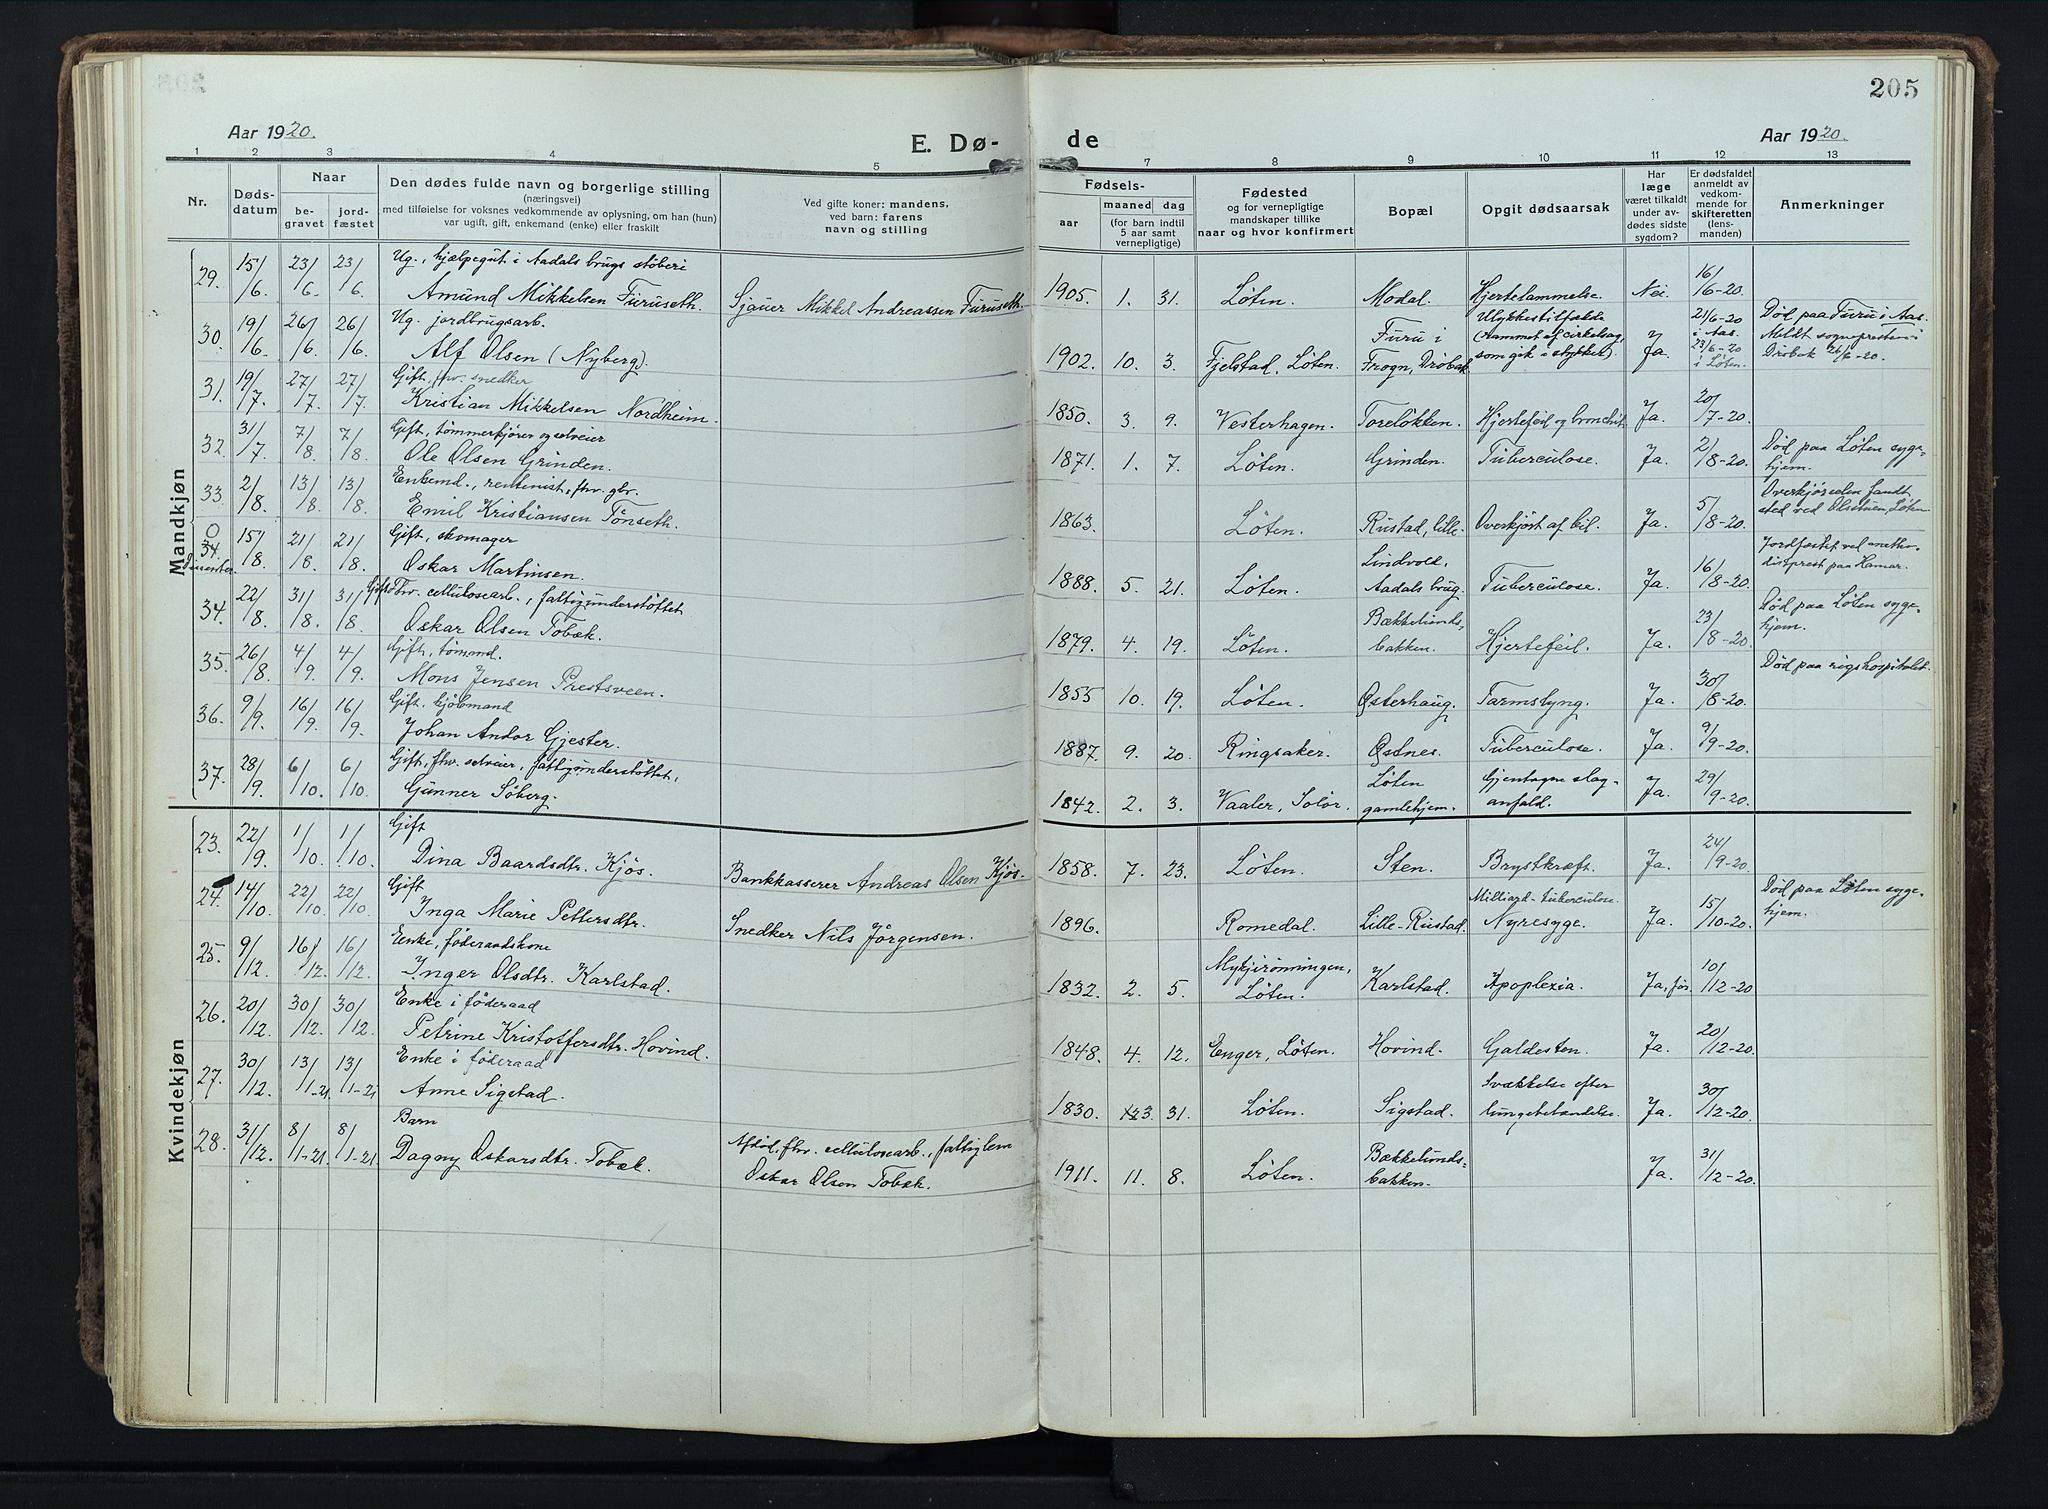 205
Aar 1920.
E. Dø- de
Aar 1920.
1 2 3 4 5 7 8 9 10 11 12 13
Nr.
Døds-
datum
Naar
be-
gravet
jord-
fæstet
Den dødes fulde navn og borgerlige stilling
(næringsvei)
med tilføielse for voksnes vedkommende av oplysning, om han (hun)
var ugift, gift, enkemand (enke) eller fraskilt
Ved gifte koner: mandens,
ved barn: farens
navn og stilling
Fødsels-
aar
maaned
dag
(for barn indtil
5 aar samt
vernepligtige)
Fødested
og for vernepligtige
mandskaper tillike
naar og hvor konfirmert
Bopæl
Opgit dødsaarsak
Har
læge
været tilkaldt
under av-
dødes sidste
sygdom?
Er dødsfaldet
anmeldt av
vedkom-
mende for
skifteretten
(lens-
manden)
Anmerkninger
Mandkjøn
29. 15/6. 23/6. 23/6. Ug., hjælpegut i Aadals brugs støberi
Amund Mikkelsen Furuseth. Sjauer Mikkel Andreassen Furuseth. 1905. 1. 31. Løten. Modal. Hjertelammelse. Nei. 16/6-20.
30. 19/6. 26/6. 26/6. Ug. jordbrugsarb.
Alf Olsen (Nyberg). 1902. 10. 3. Fjelstad, Løten. Furu i
Frogn, Drøbak. Ulykkestilfælde
(rammet af cirkelsag,
som gik i stykker). Ja. 21/6-20
i Aas.
23/6-20
i Løten. Død paa Furu i Aas.
Meldt sognepresten i
Drøbak 26/6-20.
31. 19/7. 27/7. 27/7. Gift, fhv. snedker
Kristian Mikkelsen Nordheim. 1850. 3. 9. Vesterhagen. Toreløkken. Hjertefeil og bronchit. Ja. 20/7-20.
32. 31/7. 7/8. 7/8. Gift, tømmerkjører og selveier
Ole Olsen Grinden. 1871. 1. 7. Løten. Grinden. Tuberculose. Ja. 2/8-20. Død paa Løten syge-
hjem.
33. 2/8. 13/8. 13/8. Enkemd., rentenist, fhv. gbr.
Emil Kristiansen Tønseth. 1863. Løten. Rustad, lille. Overkjørt af bil. Ja. 5/8-20. Overkjørselen fandt
sted ved Olsetuen, Løten
0
34.
Dissenter. 15/8. 21/8. 21/8. Gift, skomager
Oskar Martinsen. 1888. 5. 21. Løten. Lindvold,
Aadals brug. Tuberculose. Ja. 16/8-20. Jordfæstet ved metho-
distprest paa Hamar.
34. 22/8. 31/8. 31/8. Gift. Fhv. cellulosearb., fattigunderstøttet
Oskar Olsen Tobæk. 1879. 4. 19. Løten. Bækkelunds-
bakken. Hjertefeil. Ja. 23/8-20. Død paa Løten syge-
hjem.
35. 26/8. 4/9. 4/9. Gift, tømmd.
Mons Jensen Prestsveen. 1855 10. 19. Løten. Østerhaug. Tarmslyng. Ja. 30/8-20. Død paa rigshospitalet.
36. 9/9. 16/9. 16/9. Gift, kjøbmand
Johan Andor Gjester. 1887. 9. 20. Ringsaker. Østnes. Tuberculose. Ja. 9/9-20.
37. 28/9. 6/10. 6/10. Gift, fhv. selveier, fattigunderstøttet,
Gunner Søberg. 1842. 2. 3. Vaaler, Solør. Løten
gamlehjem. Gjentagne slag-
anfald. Ja. 29/9-20.
Kvindekjøn
23. 22/9. 1/10. 1/10. Gift
Dina Baardsdtr. Kjøs. Bankkasserer Andreas Olsen Kjøs. 1858. 7. 23. Løten. Sten. Brystkræft. Ja. 24/9-20.
24. 14/10. 22/10. 22/10. Gift
Inga Marie Pettersdtr. Snedker Nils Jørgensen. 1896. Romedal. Lille-Rustad. Milliard-tuberculose.
Nyresyge. Ja. 15/10-20. Død paa Løten syge-
hjem.
25. 9/12. 16/12. 16/12. Enke, føderaadskone
Inger Olsdtr. Karlstad. 1832. 2. 5. Mykjirønningen,
Løten. Karlstad. Apoplexia. Ja, før. 10/12-20.
26. 20/12. 30/12. 30/12. Enke i føderaad
Petrine Kristoffersdtr. Hovind. 1848. 4. 12. Enger, Løten. Hovind. Galdesten. Ja. 20/12-20.
27. 30/12. 13/1-21 13/1-21 Enke i føderaad
Anne Sigstad. 1830. 3. 31. Løten. Sigstad. Svækkelse efter
lungebetændelse. Ja. 30/12-20.
28. 31/12. 8/1-21. 8/1-21 Barn
Dagny Oskarsdtr. Tobæk. Afdød, fhv. cellulosearb., fattiglem
Oskar Olsen Tobæk. 1911. 11. 8. Løten. Bækkelunds-
bakken. Ja. 31/12-20.